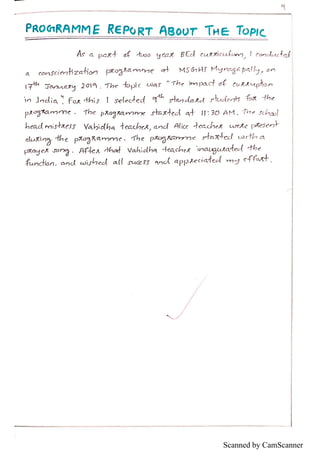 9
PROGRAMME REPORT ABOUT THE TOPIC
As a part of two year BEd curriculum, I conducted
a conscimtization programme at MSGHS Mynagappally, on
17th January 2019. The topic was "The impact of corruption
in India". For this I selected 9th standard students for the
programme. The programme started at 11:30 AM. The school
head mistress Vahidha teacher, and Alice teacher were present
during the programme. The programme started with a
prayer song. After that Vahidha teacher inaugurated the
function. and wished all success and appreciated my effort.
Scanned by CamScanner